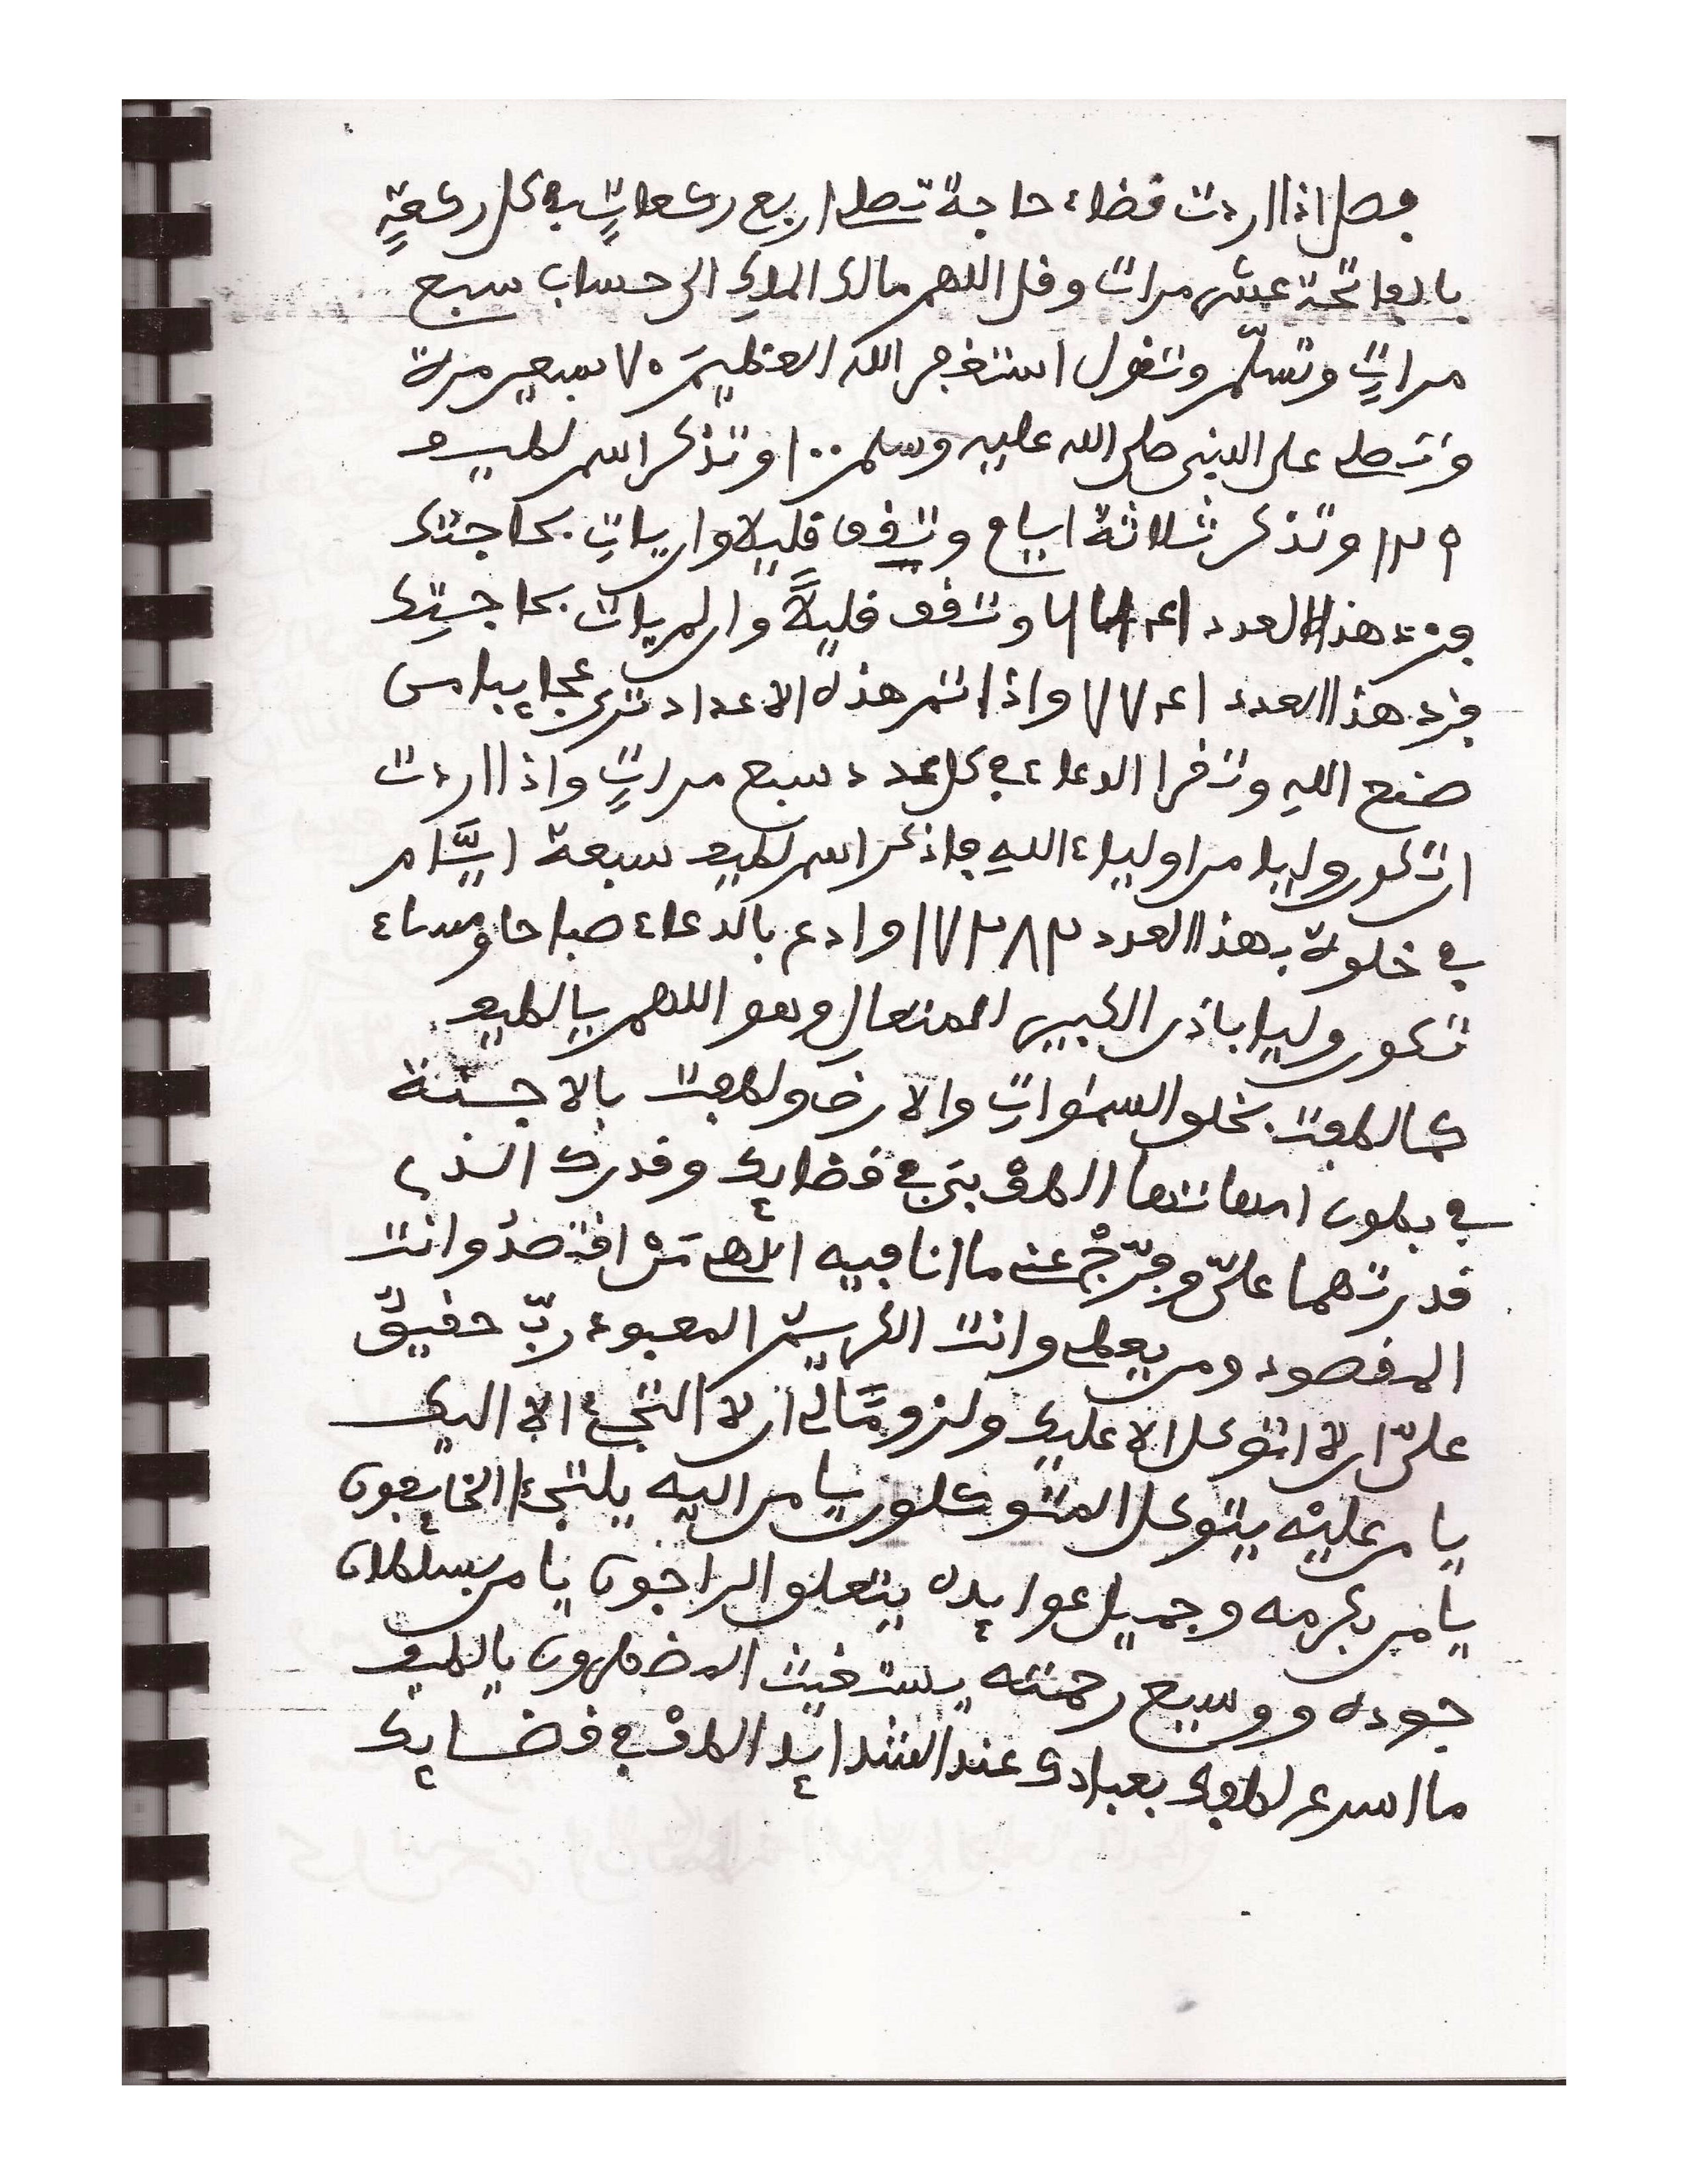 فصل اذا اردت قضاء حاجة تصلى اربع ركعاتٍ فى كل ركعةٍ
بالفاتحة عشر مرات وقل اللهم مالك الملك الى حساب سبع
مراتٍ وتسلّم وتقول استغفر الله العظيمَ ٧٠ سبعين مرة
وتصلى على النبى صلى الله عليه وسلم ١٠٠ وتذكر اسم لطيف
١٢٩ وتذكر ثلاثة ايام وتقف قليلا وان يات بحاجتك
فزد هذا العدد وتقف قليلاً وان لم يات بحاجتِك
فزد هذا العدد واذا تم هذه الاعداد ترى عجايبا من
صنع اللهِ وتقرا الدعاء فى كل عدد سبع مراتٍ واذا اردت
ان تكون وليا من اولياء اللهِ فاذكر اسم لطيف سبعة ايَّام
فى خلوة بهذا العدد ١٧٣٨٣ وادع بالدعاء صباحا ومساء
تكون وليا باذن الكبير المتعال وهو اللهم يا لطيف
كما لطفت بخلق السموات والارض ولطفت بالاجنة
فى بطون امهاتها الطفْ بى فى قضايك وقدرك الذى
قدرتهما علىّ وفرّجْ عنى ما انا فيه الهى مَنْ اقصدُ وانت
المقصود ومن يعطى وانت الكريم المعبود ربّ حقيقٌ
علىّ ان لا اتوكل الا عليك ولزومًا لى ان لا التجئ الا اليك
يا من عليْه يتوكل المتوكلون يا من اليه يلتجئ الخايفون
يا من بكرمه وجميل عوايده يتعلق الراجون يا من بسلطان
جوده ووسيع رحمته يستغيث المضطرون يا لطيف
ما اسرع لطفك بعبادك عند الشدايد الطفْ فى قضايك